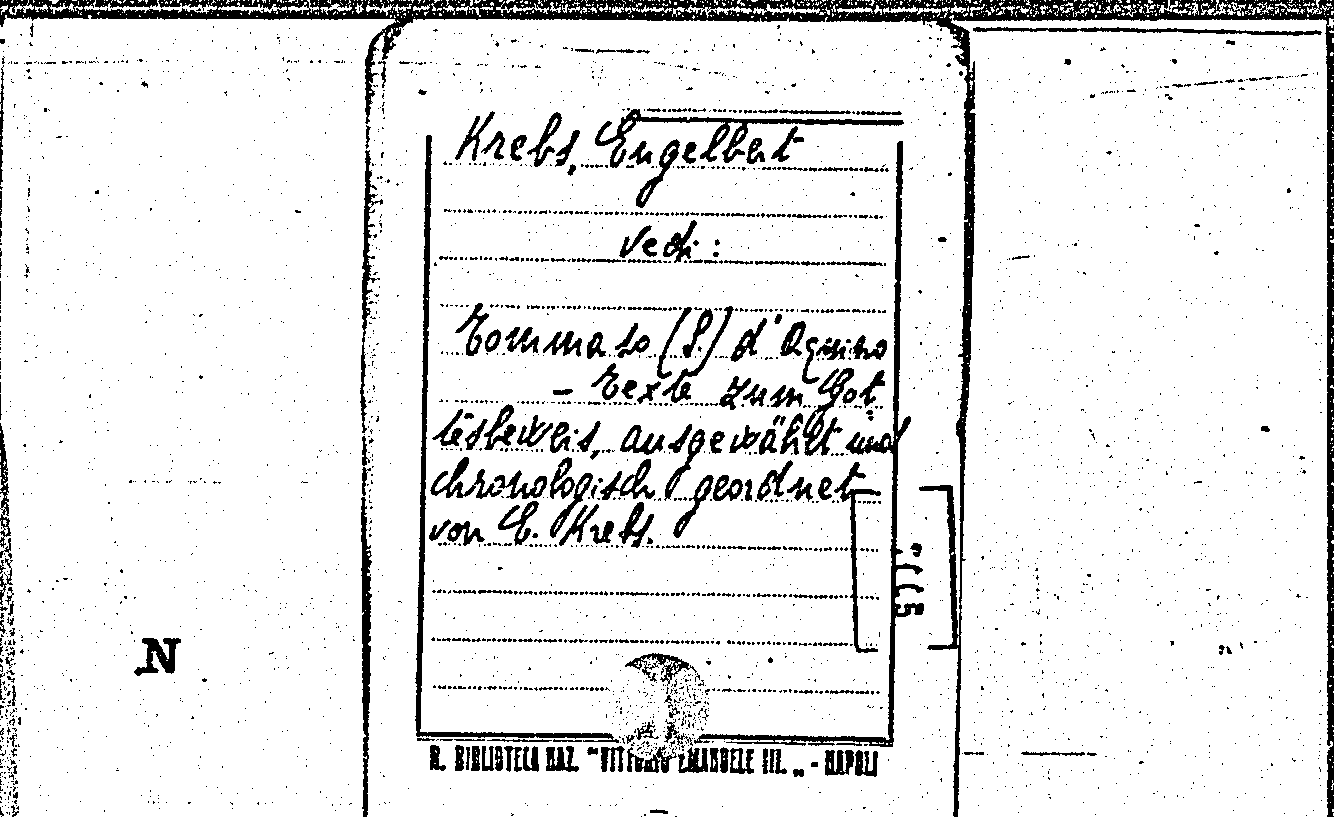 Krebs, Engelbert
vedi:
Tommaso (S.) d'Aquino
- Texte zum Got
tesbeweis, ausgewählt und
chronologisch geordnet
von E. Krebs.
N
R. BIBLIOTECA NAZ. "VITTORIO EMANUELE III. „ - NAPOLI